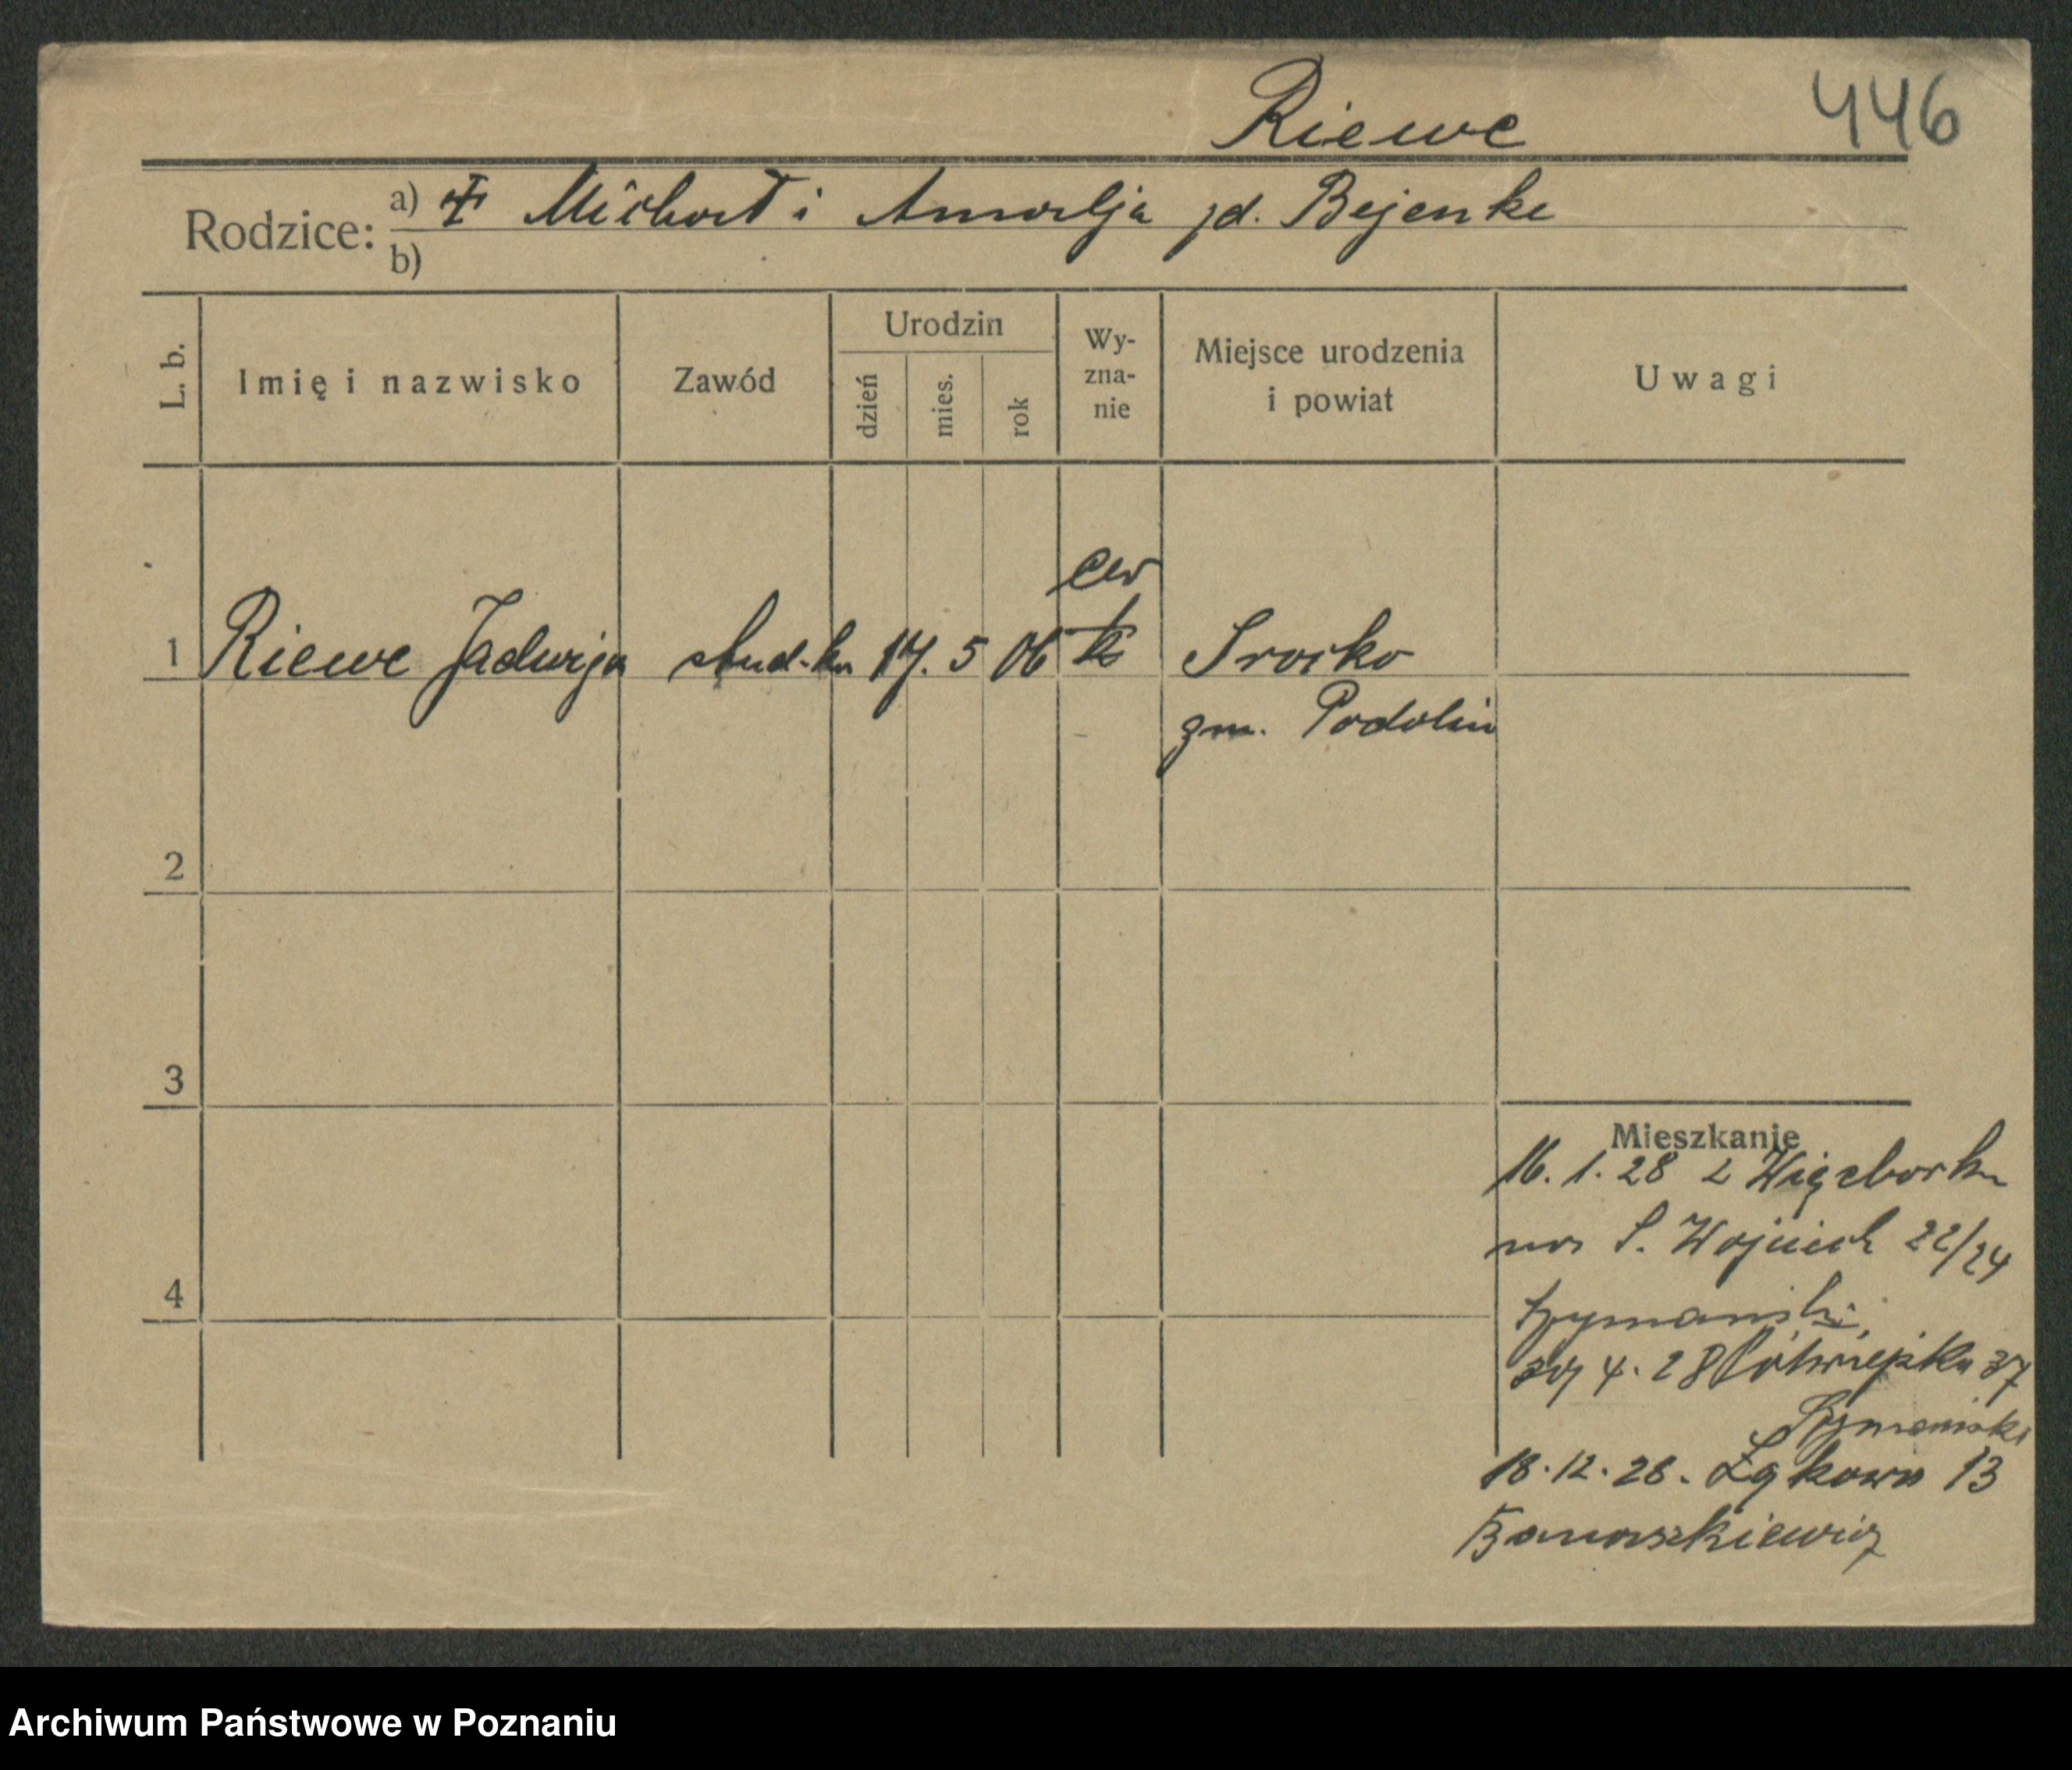 Riewe 446
Rodzice: a) Michał i Amalja zd. Bejenke
b)
L. b. Imię i nazwisko Zawód Urodzin dzień mies. rok Wy-zna-nie Miejsce urodzenia i powiat Uwagi
ew
1 Riewe Jadwiga stud-ka 17. 5 06 k Srocko
gm. Podolin
2
3
Mieszkanie
16. 1. 28 z Więcborka
na S. Wojciech 22/24
4
Szymański
4. 28 Półwiejska 37
Szymański
18. 12. 28. Łąkowa 13
Banaszkiewicz
Archiwum Państwowe w Poznaniu